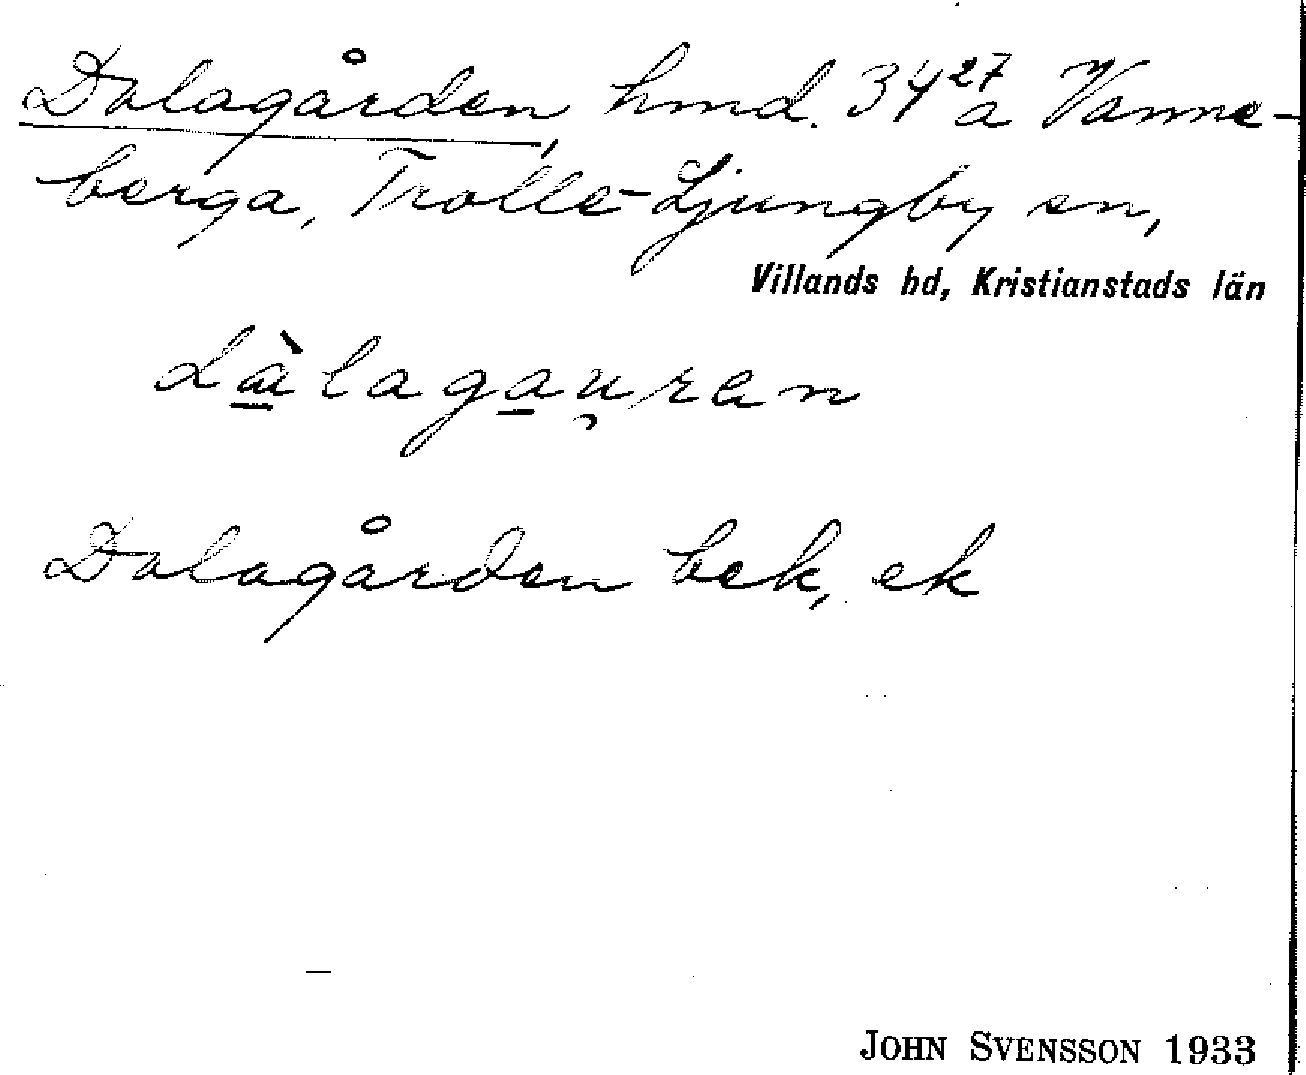 Dalagården, hmd. 34²⁷ₐ Vanne-
berga, Trolle-Ljungby sn,
Villands hd, Kristianstads län
dàlagau̯ran
Dalagården bek, ek
JOHN SVENSSON 1933